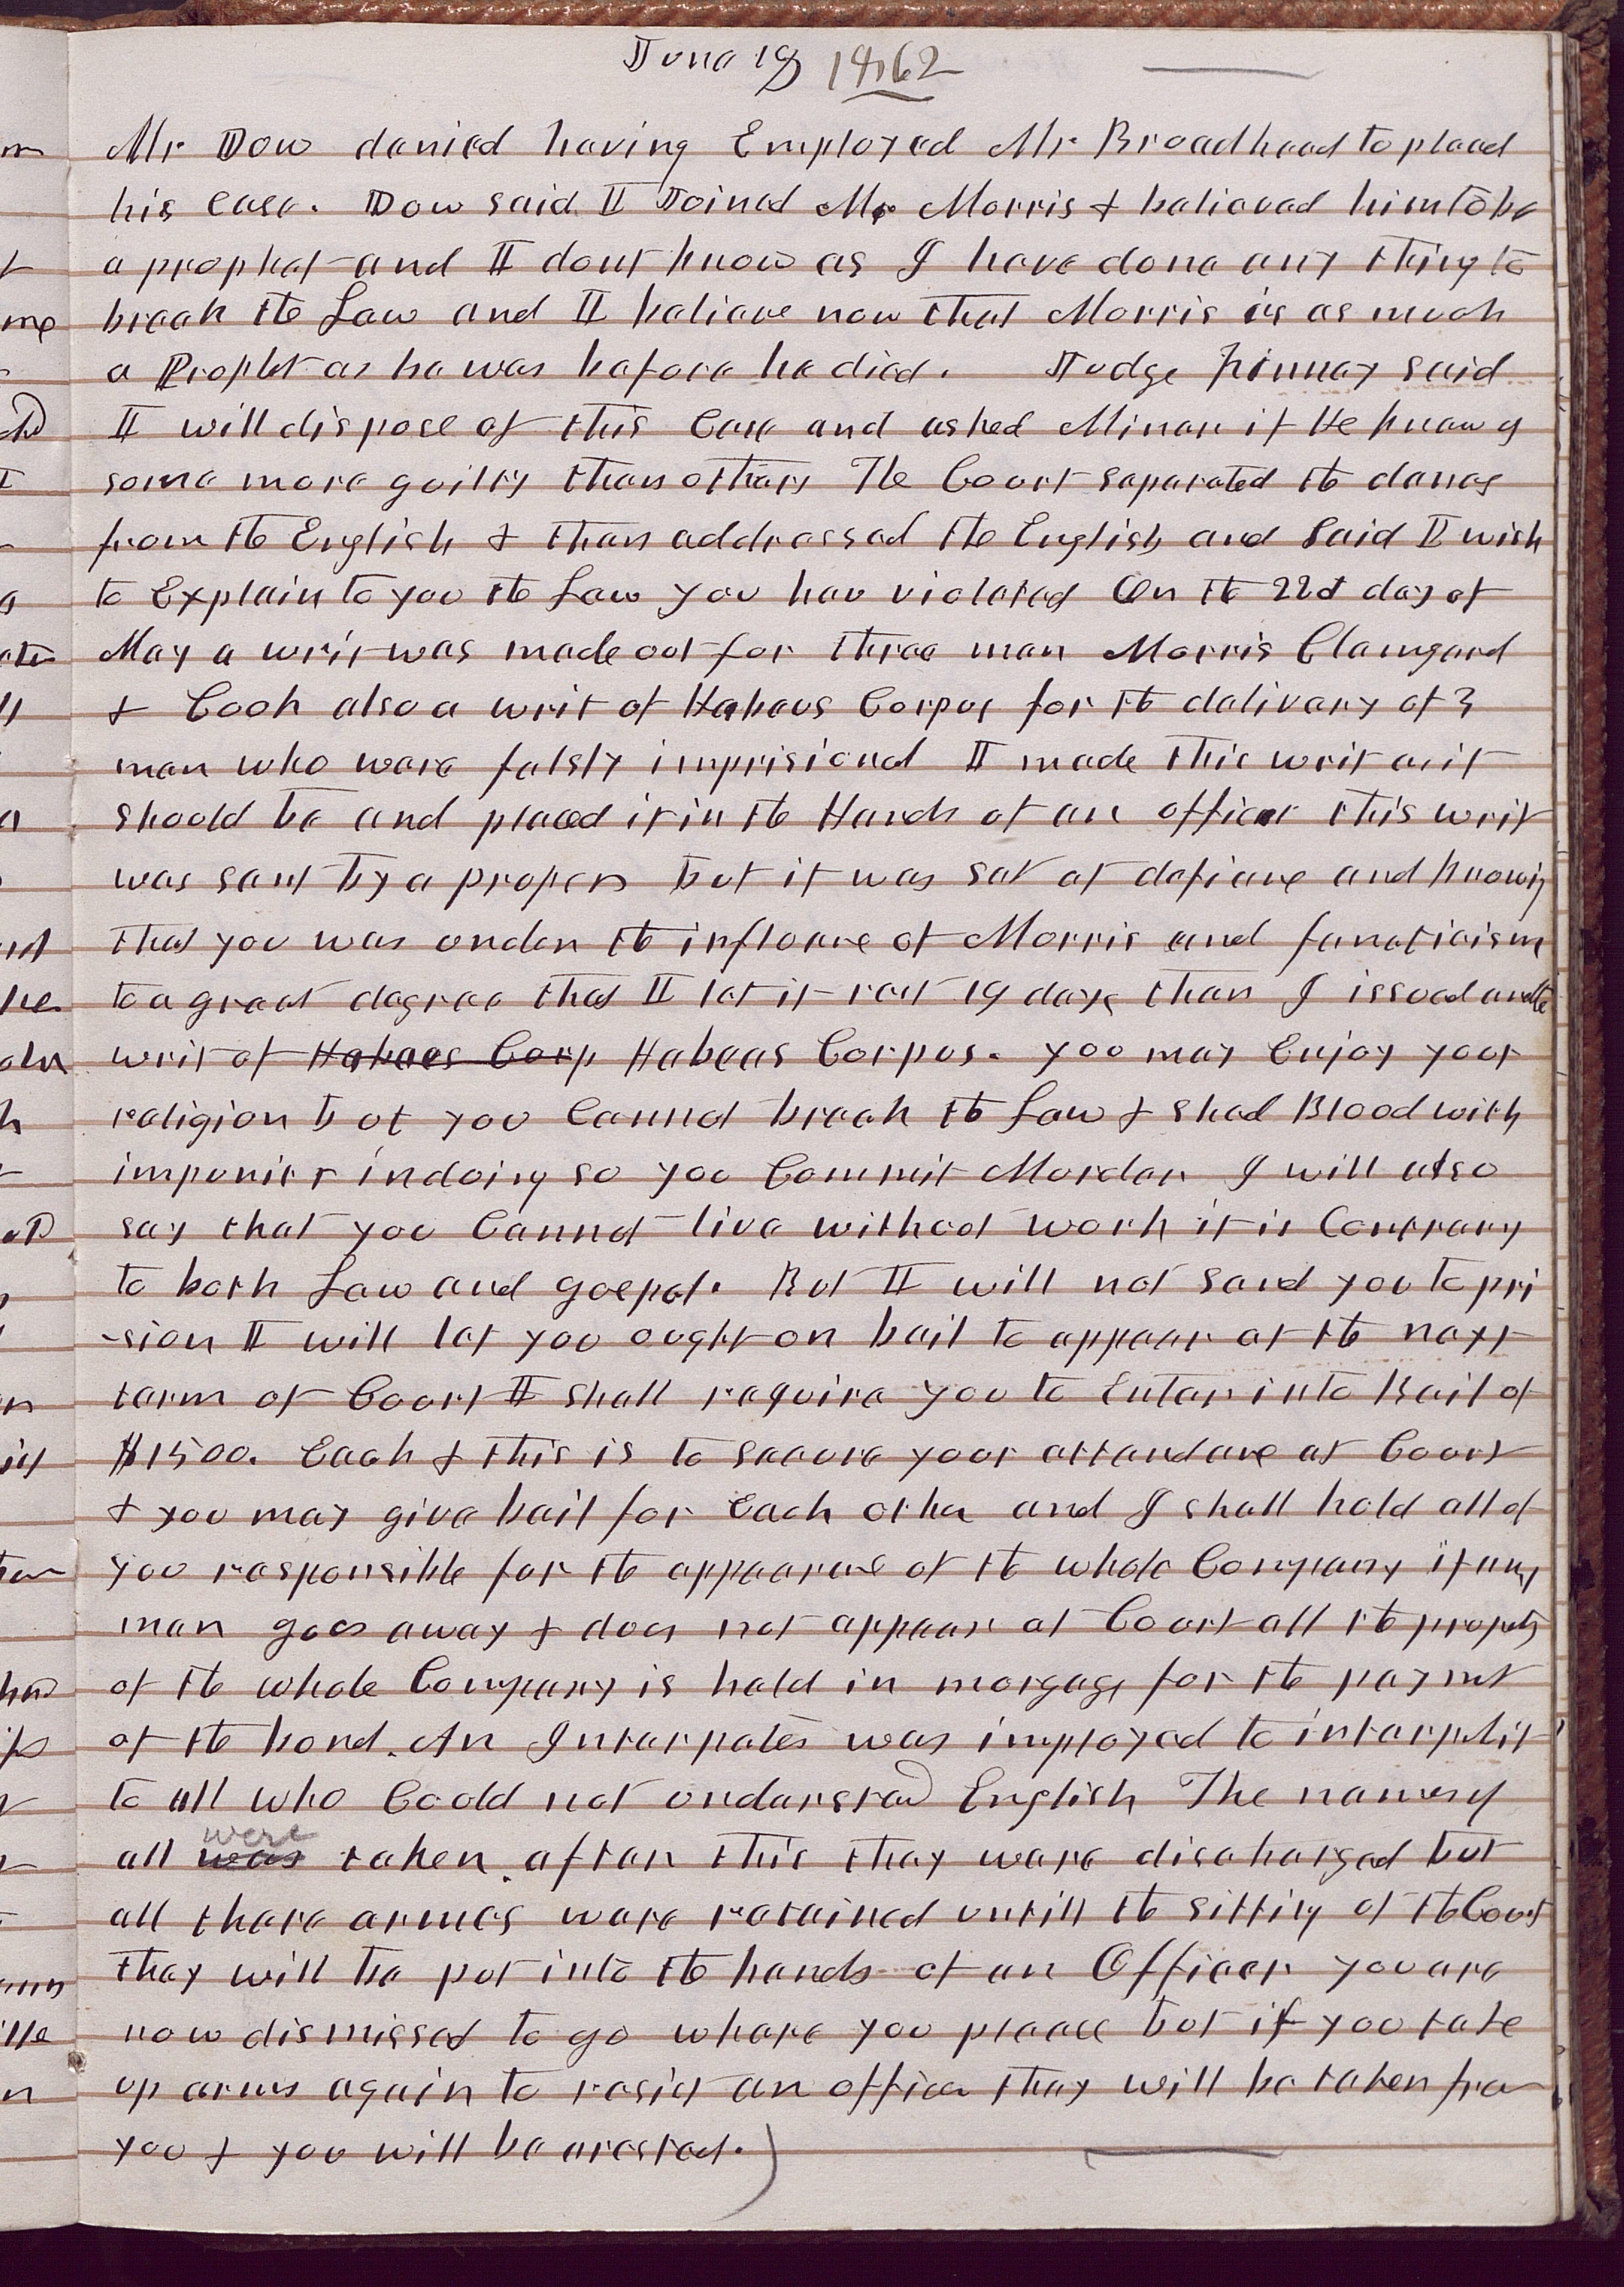 June 19 1862
Mr Dow denied having Employed Mr Broadhead to plead
his Case. Dow said I Joined Mr Morris & believed him to be
a prophet and I dont know as I have done any thing to
break the Law and I believe now that Morris is as much
a Prophet as he was before he died. Judge Kinney said
I will dispose of this Case and asked Minor if He knew of
some more guilty than others The Court separated the danes
from the English & then addressed the English and said I wish
to Explain to you the Law you hav violated On the 22d day of
May a writ was made out for three men Morris Clemgard
& Cook also a writ of Habeus Corpus for the delivery of 3
men who were falsly imprisiond I made this writ as it
should be and placed it in the Hands of an officer this writ
was sent by a proper but it was set at defiance and knowing
that you was under the influence of Morris and fanaticism
to a great degree that I let it rest 19 days then I issued another
writ of Habaes Corp Habeas Corpus. you may Enjoy your
religion but you Cannot break the Law & shed Blood with
impunity in doing so you Commit Murder I will also
say that you Cannot live without work it is Contrary
to both Law and gospel. But I will not send you to pri
-sion I will let you ought on bail to appear at the next
term of Court I shall require you to Enter into Bail of
$1500. Each & this is to secure your attendance at Court
& you may give bail for Each other and I shall hold all of
you responsible for the appearance of the whole Company if any
man goes away & does not appear at Court all the property
of the whole Company is held in morgage for the paymt
of the bond. An Interpater was imployed to interpret it
to all who Could not understand English The names of
all was were taken. after this they were discharged but
all there armes were retained untill the sitting of the Court
they will be put into the hands of an Officer you are
now dismissed to go where you please but if you take
up arms again to resist an officer they will be taken from
you & you will be arested.)